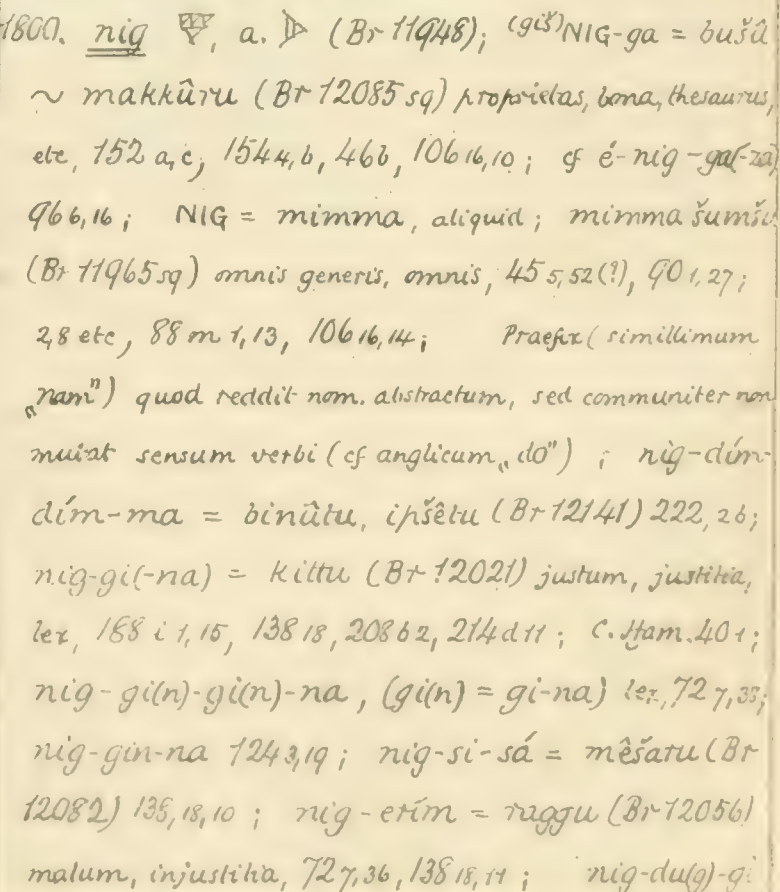 1800. nig 𒃻, a. 𒃻 (Br 11948); (giš)NIG-ga = bušû
~ makkûru (Br 12085 sq) proprietas, bona, thesaurus,
etc, 152 a, c, 154 4, b, 46 b, 106 16, 10; cf é-nig-ga(-za)
96 6, 16; NIG = mimma, aliquid; mimma šumšu
(Br 11965 sq) omnis generis, omnis, 45 5, 52 (?), 90 1, 27;
2, 8 etc, 88 m 1, 13, 106 16, 14; Praefix (simillimum
„nam") quod reddit nom. abstractum, sed communiter non
mutat sensum verbi (cf anglicum „do"); nig-dím-
dím-ma = binûtu, ipšêtu (Br 12141) 222, 26;
nig-gi(-na) = kittu (Br 12021) justum, justitia,
lex, 188 i 1, 15, 138 18, 208 b 2, 214 d 11; C. Ḫam. 40 1;
nig-gi(n)-gi(n)-na, (gi(n) = gi-na) lex, 72 7, 33;
nig-gin-na 124 3, 19; nig-si-sá = mêšaru (Br
12082) 138, 18, 10; nig-erím = raggu (Br 12056)
malum, injustitia, 72 7, 36, 138 18, 11; nig-du(g)-gi